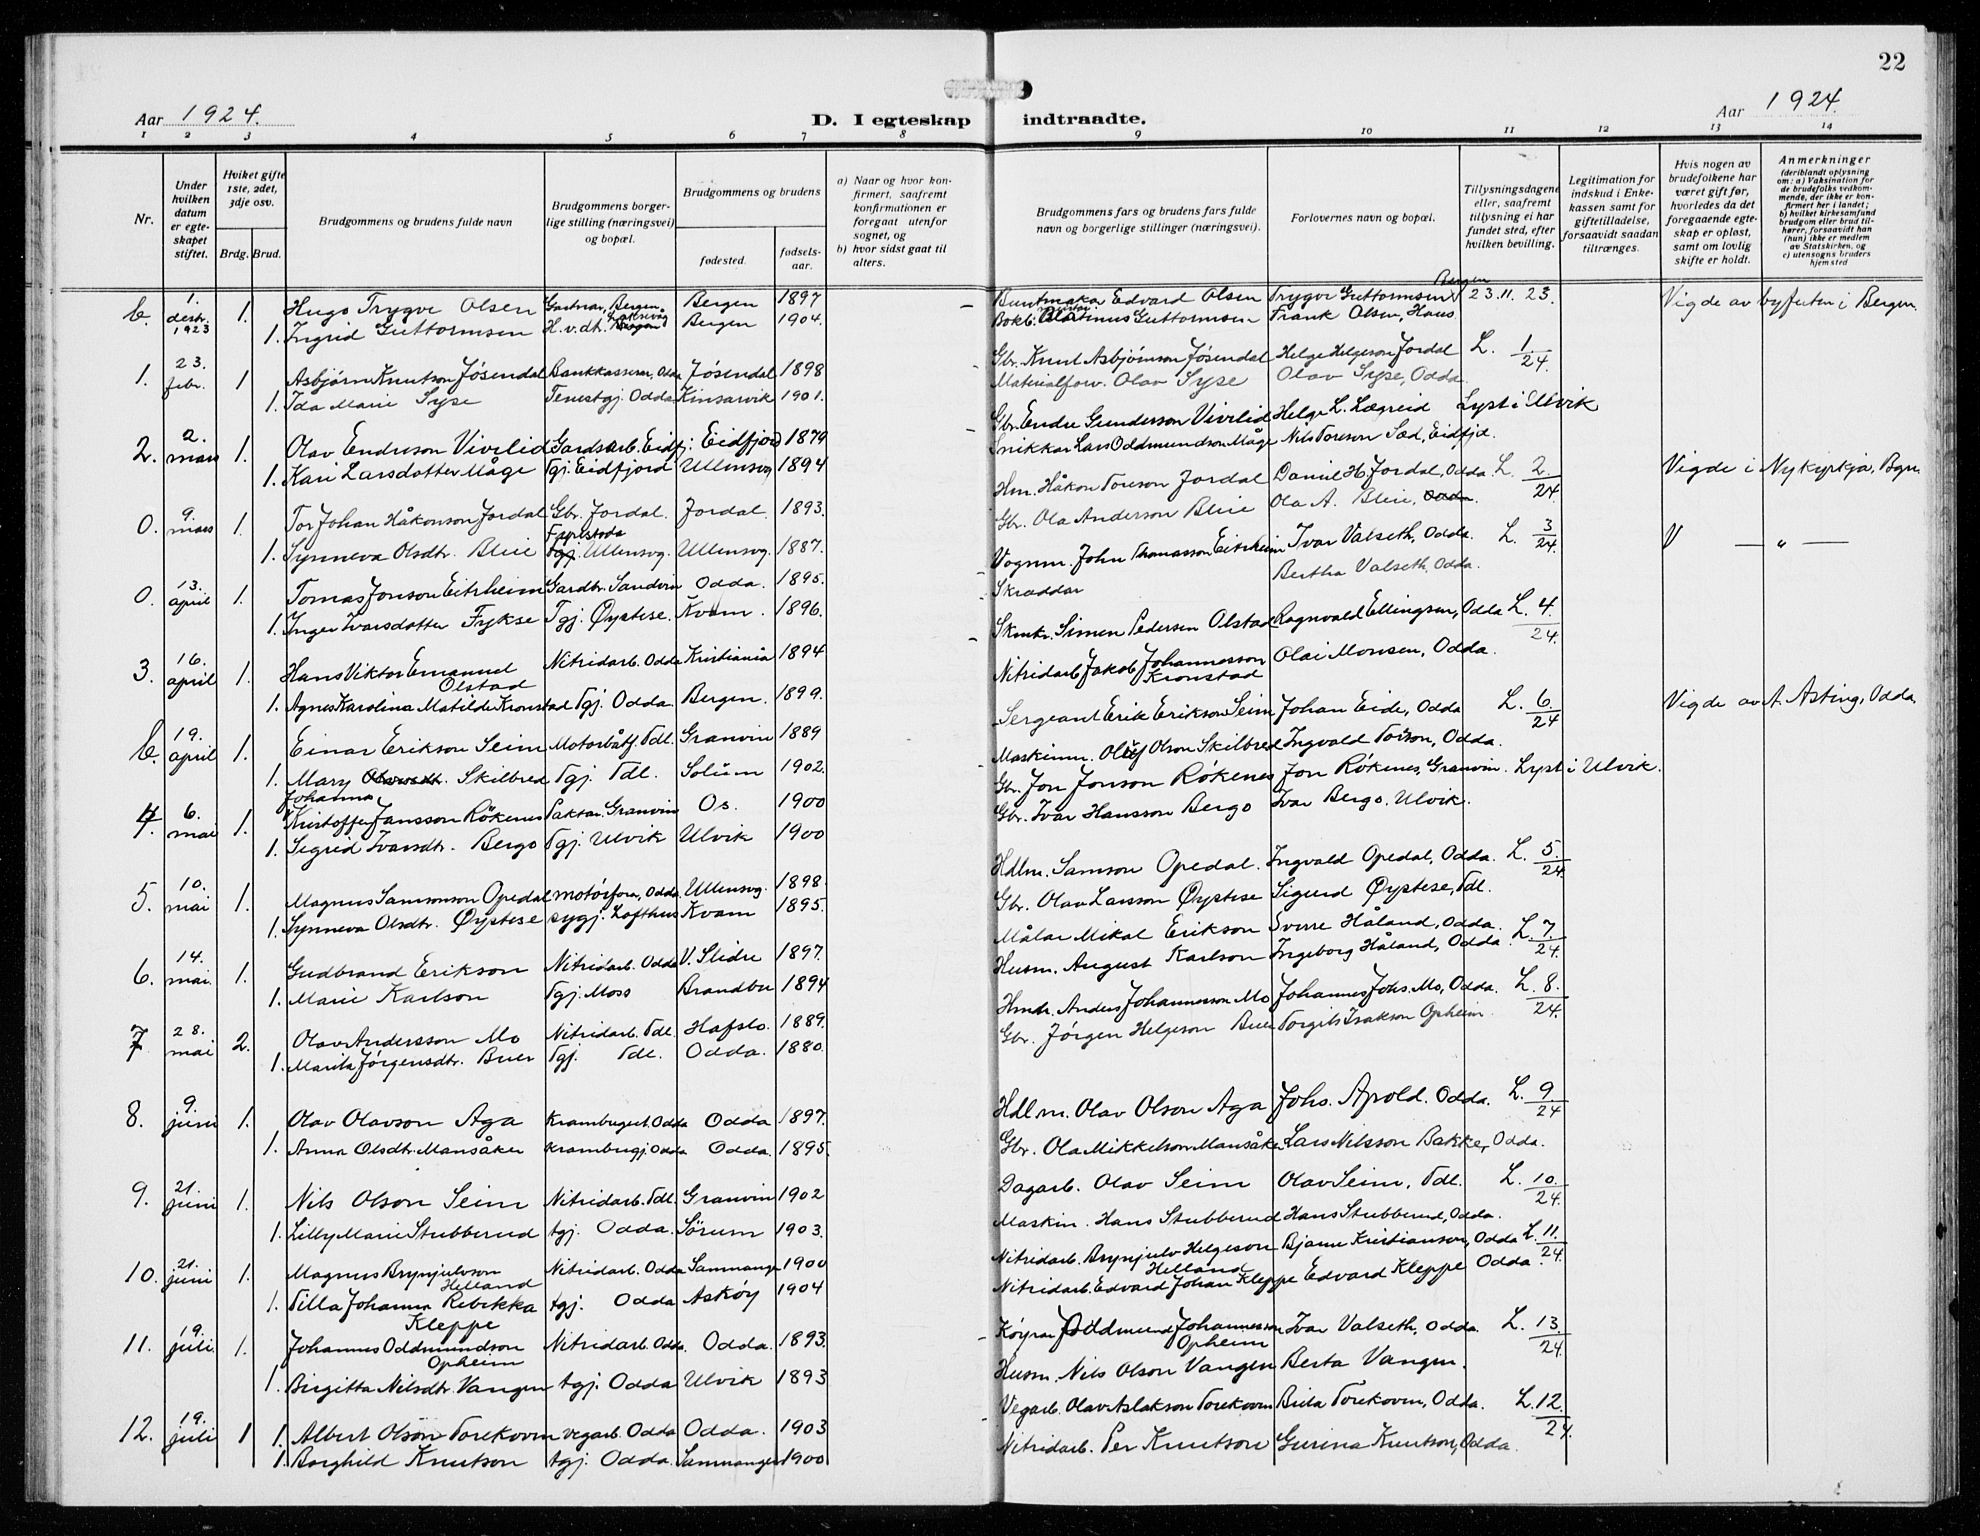 22
Aar 1924.
D. I egteskap indtraadte.
Aar 1924.
1 2 3 4 5 6 7 8 9 10 11 12 13 14
Nr.
Under hvilken datum er egte-skapet stiftet.
Hviket gifte 1ste, 2det, 3dje osv.
Brdg. Brud.
Brudgommens og brudens fulde navn
Brudgommens borger-lige stilling (næringsvei) og bopæl.
Brudgommens og brudens
fødested.
fødsels-aar.
a) Naar og hvor kon-firmert, saafremt konfirmationen er foregaat utenfor sognet, og
b) hvor sidst gaat til alters.
Brudgommens fars og brudens fars fulde navn og borgerlige stillinger (næringsvei).
Forlovernes navn og bopæl.
Tillysningsdagene eller, saafremt tillysning ei har fundet sted, efter hvilken bevilling.
Legitimation for indskud i Enke-kassen samt for giftetilladelse, forsaavidt saadan tiltrænges.
Hvis nogen av brudefolkene har været gift før, hvorledes da det foregaaende egte-skap er opløst, samt om lovlig skifte er holdt.
Anmerkninger (deriblandt oplysning om: a) Vaksination for de brudefolks vedkom-mende, der ikke er kon-firmert her i landet; b) hvilket kirkesamfund brudgom eller brud til-hører, forsaavidt han (hun) ikke er medlem av Statskirken, og c) utensogns bruders hjemsted
b. 1. destr. 1923 1. Hugo Trygve Olsen Gartnar, Bergen, Bergen 1897 Buntmakar Edvard Olsen Trygve Guttormsen Bergen 23.11.23. Vigde av byfuten i Bergen.
1. Ingrid Guttormsen H.v.dt. Bergen 1904. Bokb. Martinus Guttormsen Frank Olsen, Haus
1. 23. febr. 1 Asbjørn Knutson Jøsendal Bankkasserar, Odda Jøsendal 1898 Gbr. Knut Asbjørnson Jøsendal Helge Helgeson Jordal L. 1/24.
1. Ida Marie Syse Tenestgj. Odda Kinsarvik 1901. Materialforv. Olav Syse Olav Syse, Odda.
2. 2. mars 1. Olav Endreson Vivelid Gardsarb. Eidfj. Eidfjord 1879 Gbr. Endre Gunderson Vivelid Helge L. Lægreid Lyst i Ulvik
1. Kari Larsdotter Måge Tgj. Eidfjord Ullensvg 1894 Snikkar Lars Oddmundson Måge Nils Toreson Sæd, Eidfjd.
0. 9. mars 1. Tor Johan Håkonson Jordal Gbr. Jordal. Jordal. 1893. Hm. Håkon Toreson Jordal Daniel H. Jordal, Odda L. 2./24. Vigde i Nykyrkja, Bgn.
1. Synneva Olsdtr. Bleie Tgj. Ullensvg. Ullensvg. 1887. Gbr. Ola Anderson Bleie Ola A. Bleie, Odda
0. 13. april 1. Tomas Jonson Eitrheim Gardbr. Sandvin Odda. 1895. Vognm. John Thomasson Eitrheim Ivar Valseth, Odda. L. 3/24. V — " —
1. Inger Ivarsdotter Fykse Tgj. Øystese. Kvam. 1896. Skræddar Bertha Valseth, Odda.
3. 16. april 1. Hans Viktor Emanuel Olstad Nitridarb. Odda Kristiania 1894 Skmkr. Simen Pedersen Olstad Ragnvald Ellingsen, Odda L. 4./24.
1. Agnes Karolina Matilde Kronstad Tgj. Odda. Bergen. 1899. Nitridarb. Jakob Johannesson Kronstad Olai Monsen, Odda.
b. 19. april 1. Einar Erikson Seim Motorbåtf. Tdl. Granvin 1889 Sergeant Erik Erikson Seim Johan Eide, Odda L. 6./24 Vigde av A. Asting, Odda.
1. Mary Johanna Skilbred Tgj. Tdl. Solum 1902. Maskinm. Oluf Olson Skilbred Ingvald Toison, Odda.
4. 6. mai 1. Kristoffer Jansson Røkenes Paktar. Granvin Os. 1900 Gbr. Jon Jonson Røkenes Jon Røkenes, Granvin. Lyst i Ulvik.
1. Sigrid Ivarsdtr. Bergo Tgj. Ulvik Ulvik 1900 Gbr. Ivar Hansson Bergo Ivar Bergo, Ulvik.
5. 10. mai 1. Magnus Samsonson Opedal motorfora, Odda Ullensvg. 1898. Hdlm. Samson Opedal. Ingvald Opedal, Odda. L. 5./24.
1. Synneva Olsdtr. Øystese sygj. Lofthus Kvam 1895. Gbr. Olav Larsson Øystese Sigurd Øystese, Tdl.
6. 14. mai. 1. Gudbrand Erikson Nitridarb. Odda V. Slidre 1897. Målar Mikal Erikson Sverre Håland, Odda. L. 7./24.
1. Marie Karlson Tgj. Moss Brandbu 1894 Husm. August Karlson Ingeborg Håland, Odda
7 28. mai 2. Olav Andersson Mo Nitridarb. Tdl. Hafslo. 1889. Hmdr. Anders Johannesson Mo Johannes Johs. Mo, Odda. L. 8./24.
1. Marita Jørgensdtr. Buer Tgj. Tdl. Odda. 1880. Gbr. Jørgen Helgeson Buer Torgils Isakson Opheim.
8. 9. juni 1. Olav Olavson Aga Krambugut. Odda Odda 1897. Hdlm. Olav Olson Aga Johs. Apold. Odda. L. 9/24
1. Anna Olsdtr. Mansåker krambugj. Odda Odda. 1895. Gbr. Ola Mikkelson Mansåker Lars Nilsson Bakke, Odda.
9. 21. juni 1. Nils Olson Seim Nitridarb. Tdl. Granvin 1902 Dagarb. Olav Seim Olav Seim, Tdl. L. 10./24.
1. Lilly Marie Stubberud tgj. Odda. Sørum 1903. Maskin. Hans Stubberud Hans Stubberud, Odda.
10. 21. juni 1. Magnus Brynjulvson Helland Nitridarb. Odda Sammanger 1900 Nitridarb. Brynjulv Helgeson Helland Bjarne Kristianson, Odda L. 11./24.
1. Tilla Johanna Rebekka Kleppe tgj. Odda Askøy 1904 Nitridarb. Edvard Johan Kleppe Edvard Kleppe Odda.
11. 19. juli. 1. Johannes Oddmundson Opheim Nitridarb. Odda. Odda. 1893. Køyrar Oddmund Johannesson Opheim Ivar Valseth, Odda. L. 13./24.
1. Birgitta Nilsdtr. Vangen tgj. Odda Ulvik 1893 Husm. Nils Olson Vangen Berta Vangen.
12. 19. juli 1 1. Albert Olson Torekoven vegarb. Odda Odda. 1903 Vegarb. Olav Aslakson Torekoven Brita Torekoven, Odda. L. 12./24.
1. Borghild Knutson tgj. Odda. Sammanger 1900 Nitridarb. Per Knutson Gurina Knutson, Odda.